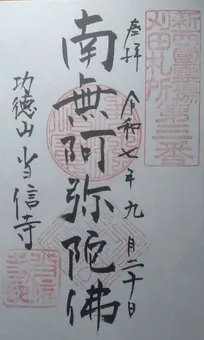 新西国霊場第三番
刈田札所
奉拝
令和七年九月二十日
南無阿弥陀佛
功徳山当信寺